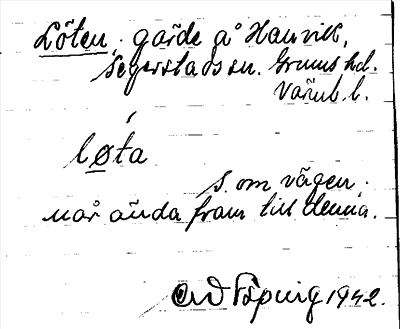 Löten, gärde å Hanvik,
Segerstads sn. Grums hd.
Värml. l.
løta
s. om vägen;
når ända fram till denna.
1942.